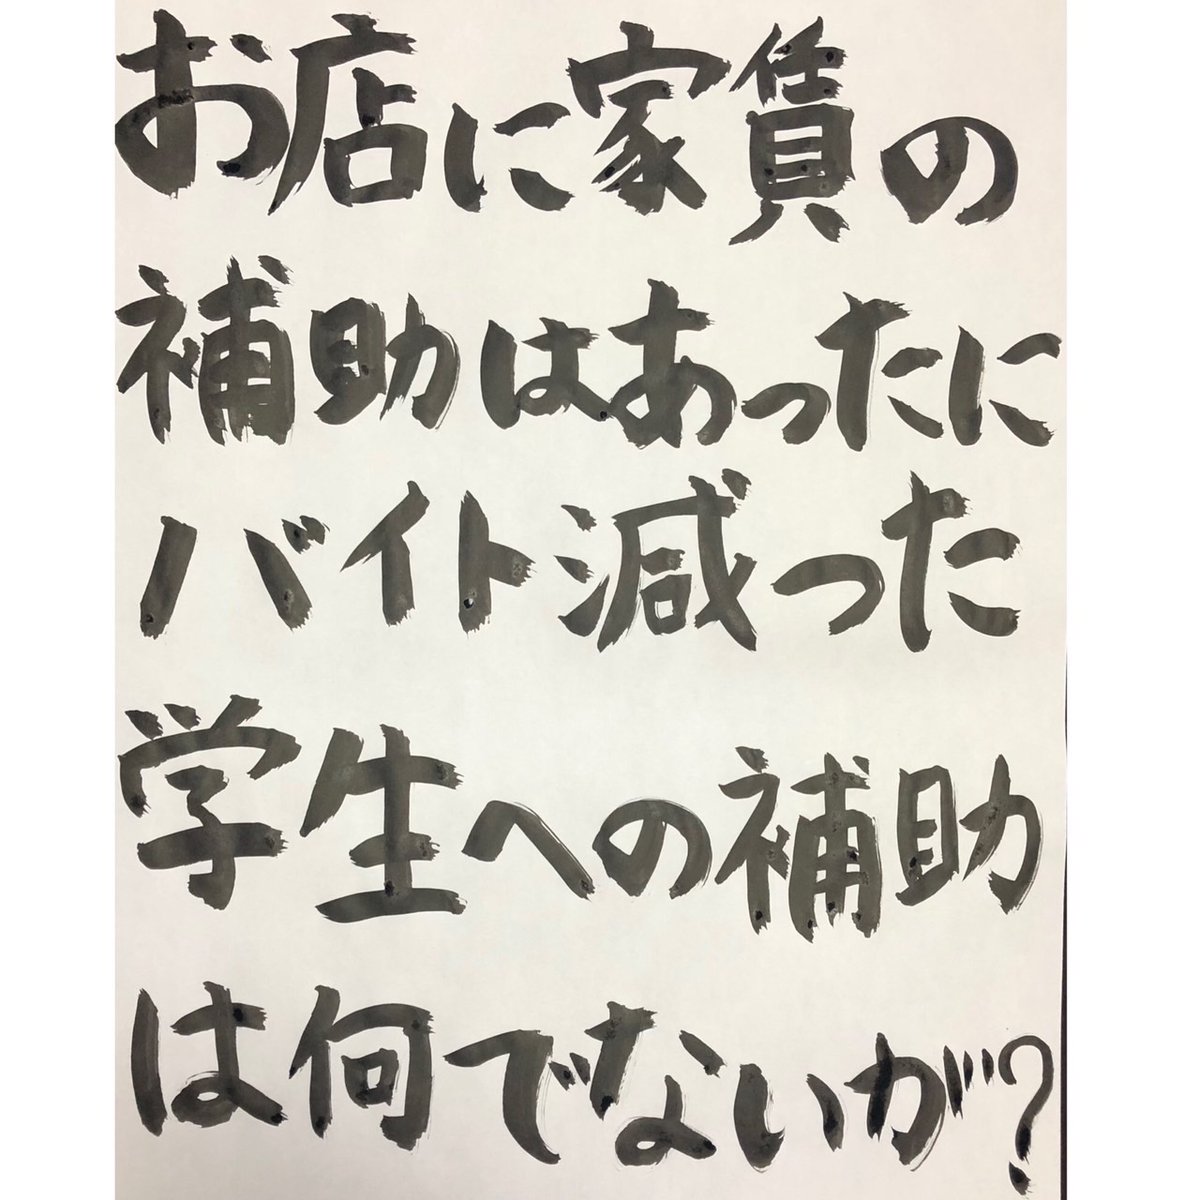 お店に家賃の
補助はあったに
バイト減った
学生への補助
は何でないが?